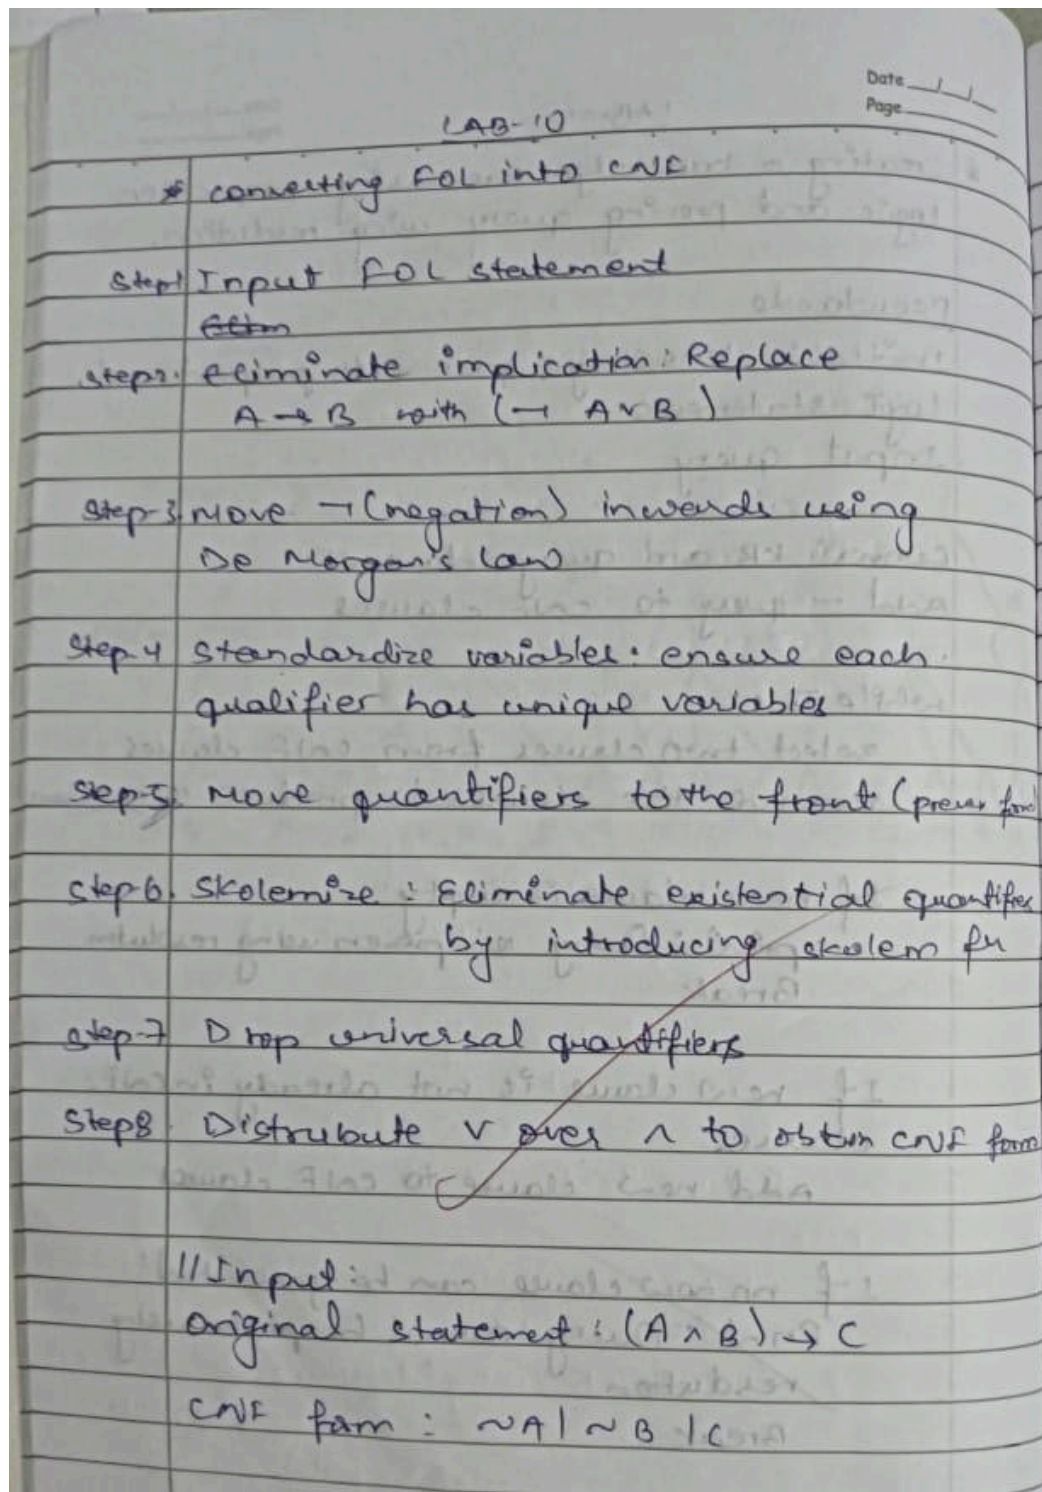 Date
Page
LAB-10
* converting FOL into CNF
Step1 Input FOL statement
step2. eliminate implication: Replace
A → B with (¬ A ∨ B)
Step-3 Move ¬ (negation) inwards using
De Morgan's law
Step-4 Standardize variables: ensure each
qualifier has unique variables
step-5. Move quantifiers to the front (prenex form
step-6. Skolemize : Eliminate existential quantifier
by introducing skolem fn
step-7 Drop universal quantifiers
Step8 Distrubute ∨ over ∧ to obtain CNF form
// Input:
Original statement : (A ∧ B) → C
CNF form : ~A | ~B | C